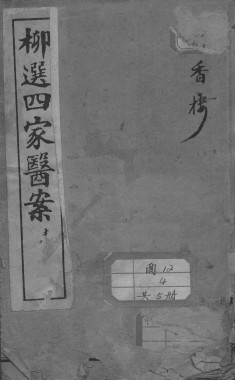 柳選四家醫案
香樓
圖 12
4
共 5 册